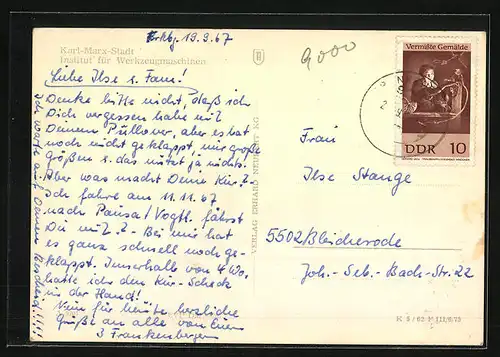 Karl-Marx-Stadt
Institut für Werkzeugmaschinen
Frkbg. 19.9.67
9000
Liebe Ilse u. Fam.!
Denke bitte nicht, daß ich
Dich vergessen habe mit
Deinem Pullover, aber es hat
noch nicht geklappt, nur große
größen u. das nützt ja nichts.
Aber was macht Deine Kur?
Ich fahre am 11.11.67
nach Pausa/Vogtl. fährst
Du mit? - Bei mir hat
es ganz schnell noch ge-
klappt. Innerhalb von 4 Wo.
hatte ich den Kur-Scheck
in der Hand!
Nun für heute herzliche
Grüße an alle von Euern
3 Frankenbergern
Ich warte auf Deinen Bescheid!!!!
VERLAG ERHARD NEUBERT KG
Vermißte Gemälde
DDR 10
Frau
Ilse Stange
5502 Bleicherode
Joh.-Seb.-Bach-Str. 22
K 5/62 F III/6/73